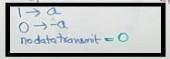 1 → a
0 → -a
no data transmit = 0